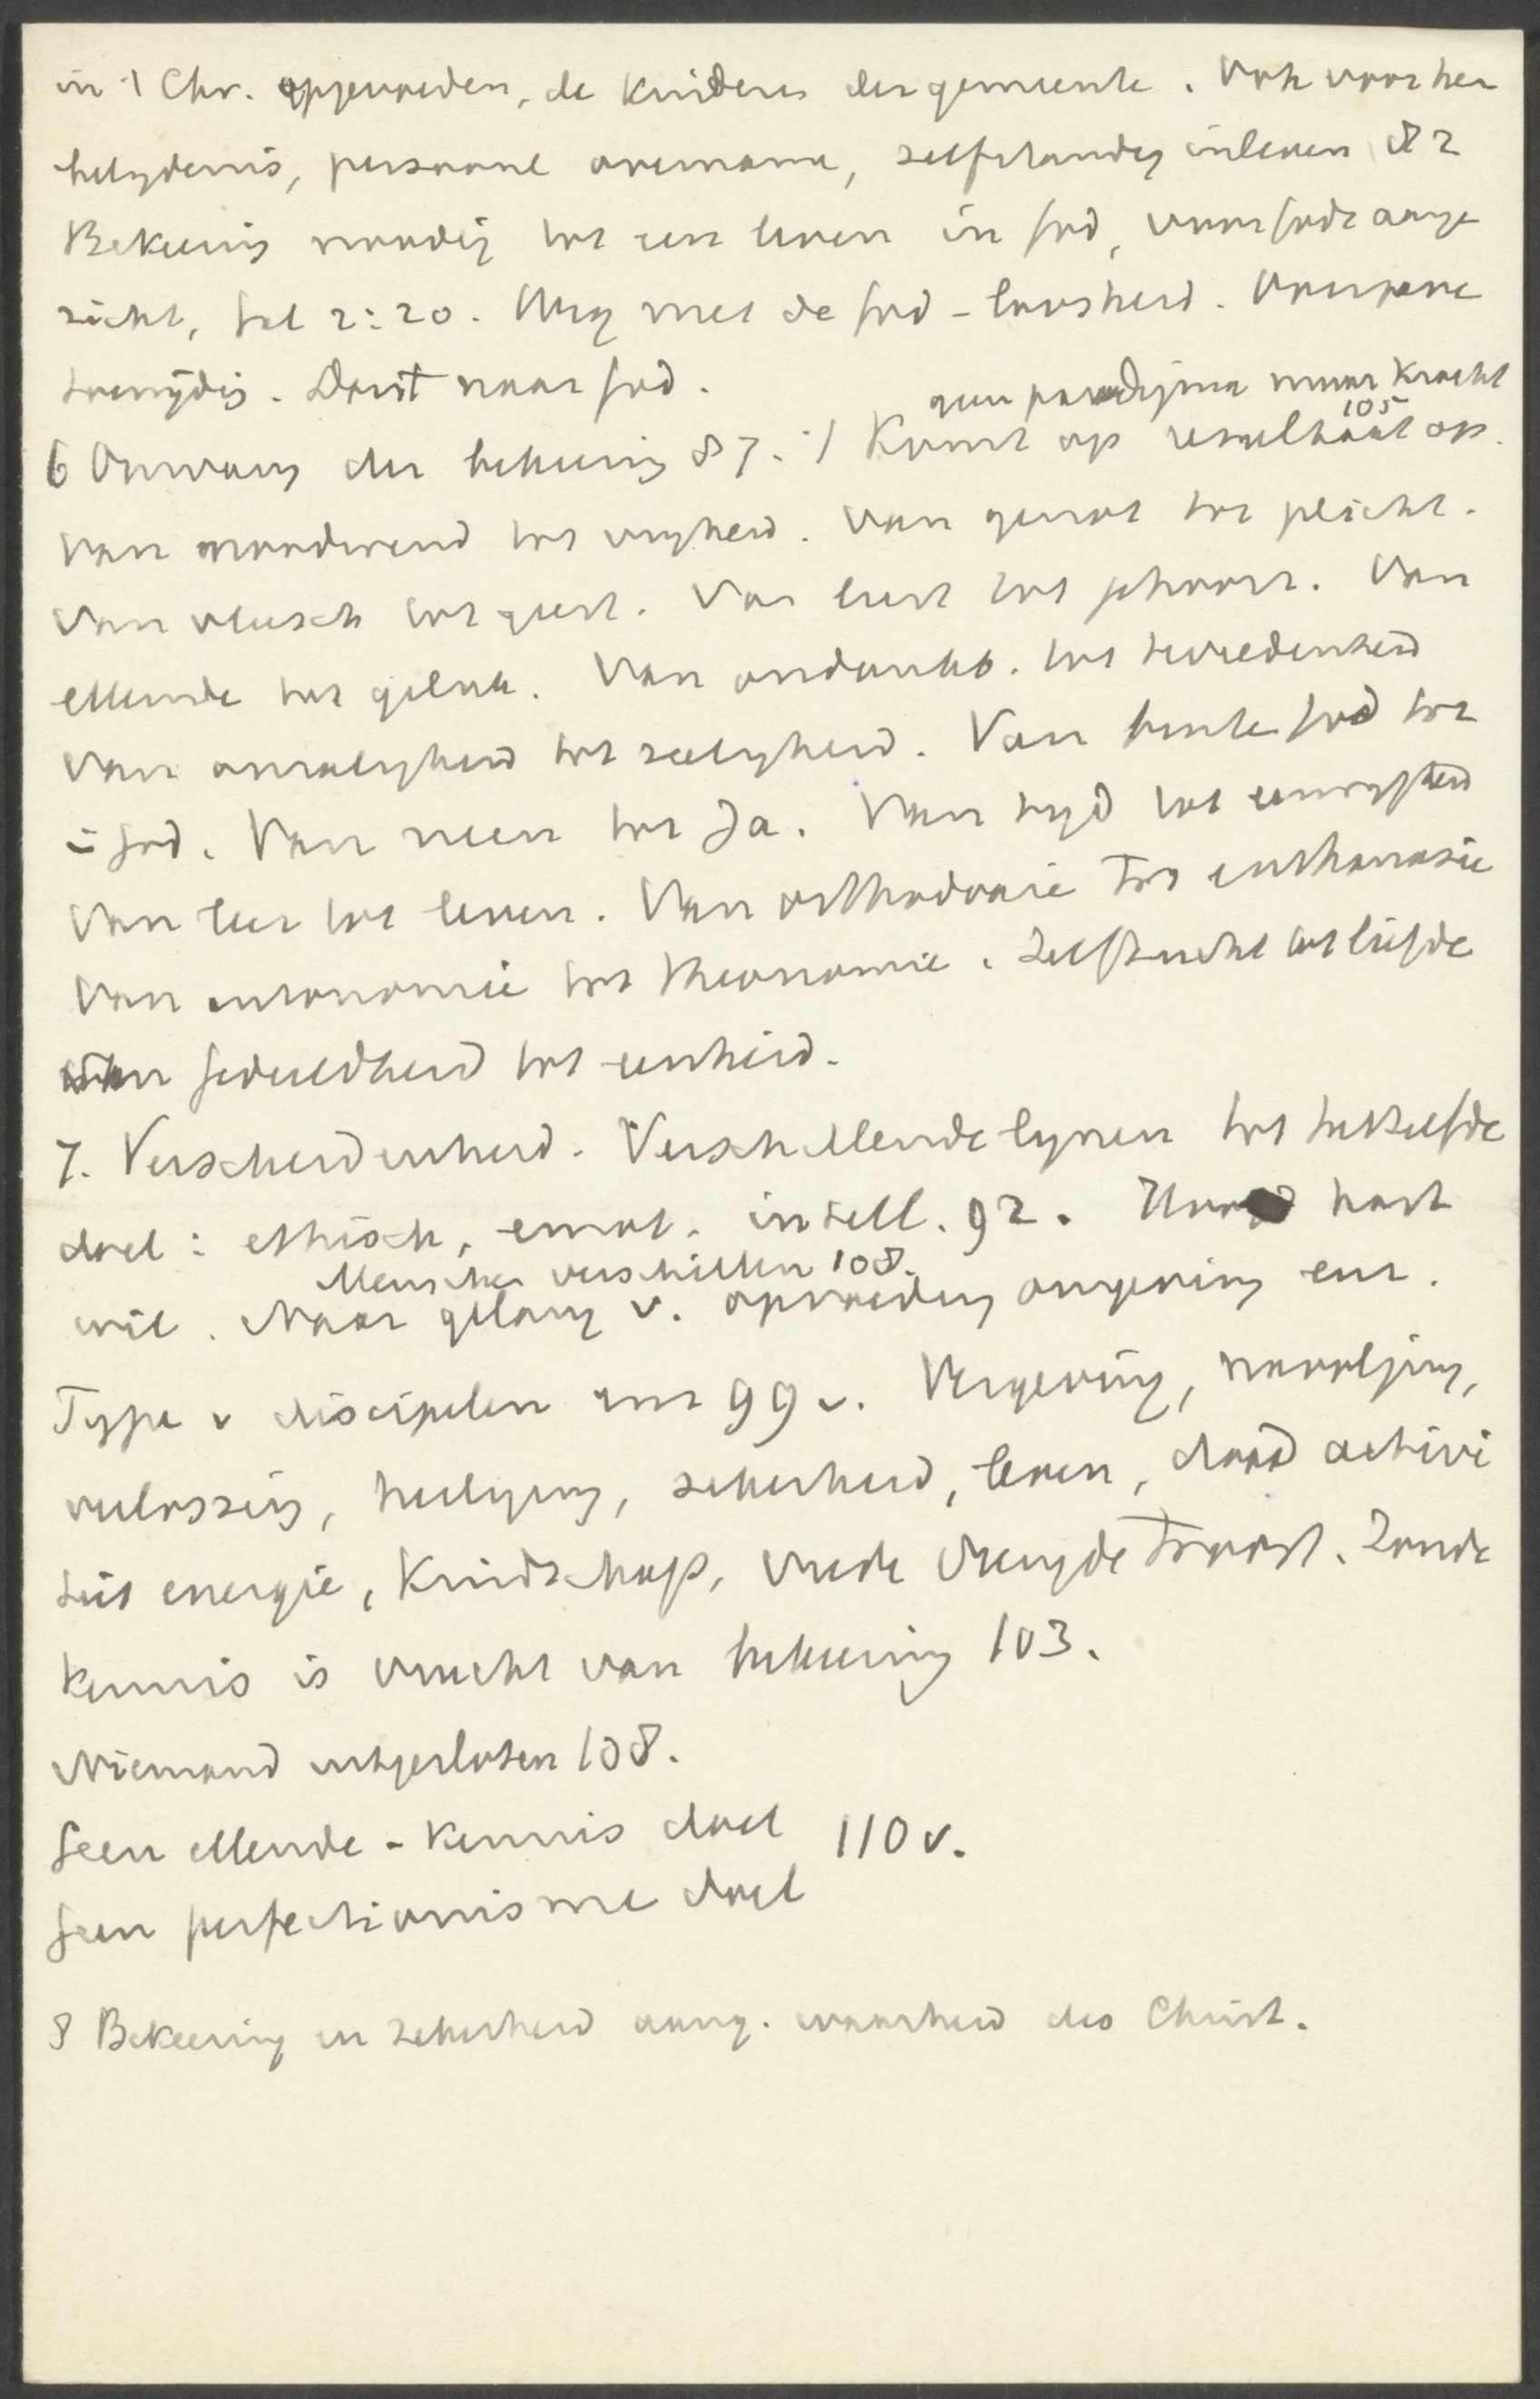 in 't Chr. opgevoeden, de kinderen der gemeente. Ook voor hen
belydenis, persoonl overname, zelfstandig inleven 82
Bekeering noodig tot een leven in God, voor Gods aange
zicht, Gal 2:20. Weg met de God-loosheid. Overgave
Dorst naar God.
geen paradigma maar kracht
6 Omvang der bekeering 87. 't Komt op resultaat op. 105
Van noodwend tot vryheid. Van genot tot plicht.
Van vleesch tot geest. Van lust tot Van
ellende tot geluk. Van ondankb. tot tevredenheid
Van onzaligheid tot zaligheid. Van buiten God tot
in God. Van neen tot Ja. Van tyd tot eeuwigheid
Van leer tot leven. Van orthodoxie tot euthanasie
Van autonomie tot theonomie. Zelfzucht tot liefde
Van Gedeeldheid tot eenheid.
7. Verscheidenheid. Verschillende lynen tot hetzelfde
doel: ethisch, emot. intell. 92. Hoofd hart
Menschen verschillen 108.
wil. Naar gelang v. opvoeding omgeving enz.
Type v discipelen enz 99 v. Vergeving, navolging,
verlossing, heiliging, zekerheid, leven, daad activi
teit energie, Kindschap, vrede vreugde troost. Zonde
kennis is vrucht van bekeering 103.
Niemand uitgesloten 108.
Geen ellende-kennis doel 110 v.
Geen perfectionisme doel
8 Bekeering en zekerheid aang. waarheid des Christ.